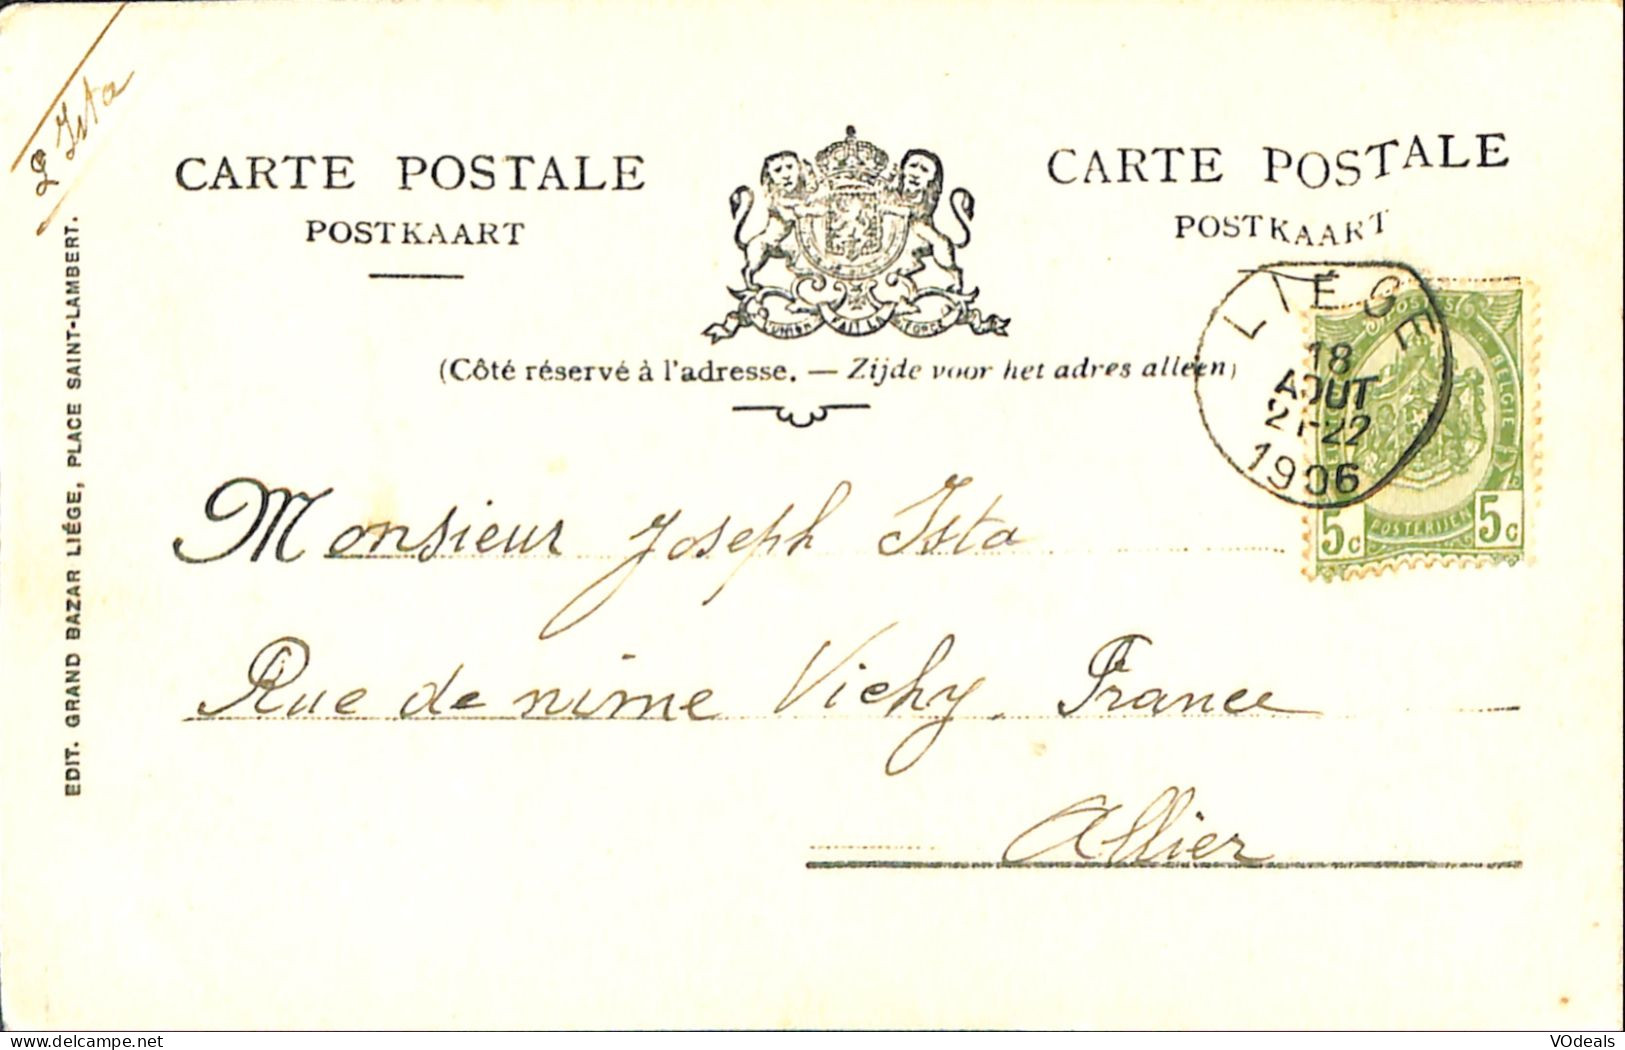 L Ista
CARTE POSTALE
POSTKAART
CARTE POSTALE
POSTKAART
L'UNION FAIT LA FORCE
(Côté réservé à l'adresse. — Zijde voor het adres alleen)
EDIT. GRAND BAZAR LIÉGE, PLACE SAINT-LAMBERT.
LIÉGE
18
AOUT
21-22
1906
POSTES
BELGIE
POSTERIJEN
5c 5c
Monsieur Joseph Ista
Rue de nime Vichy. France
Allier
VOdeals